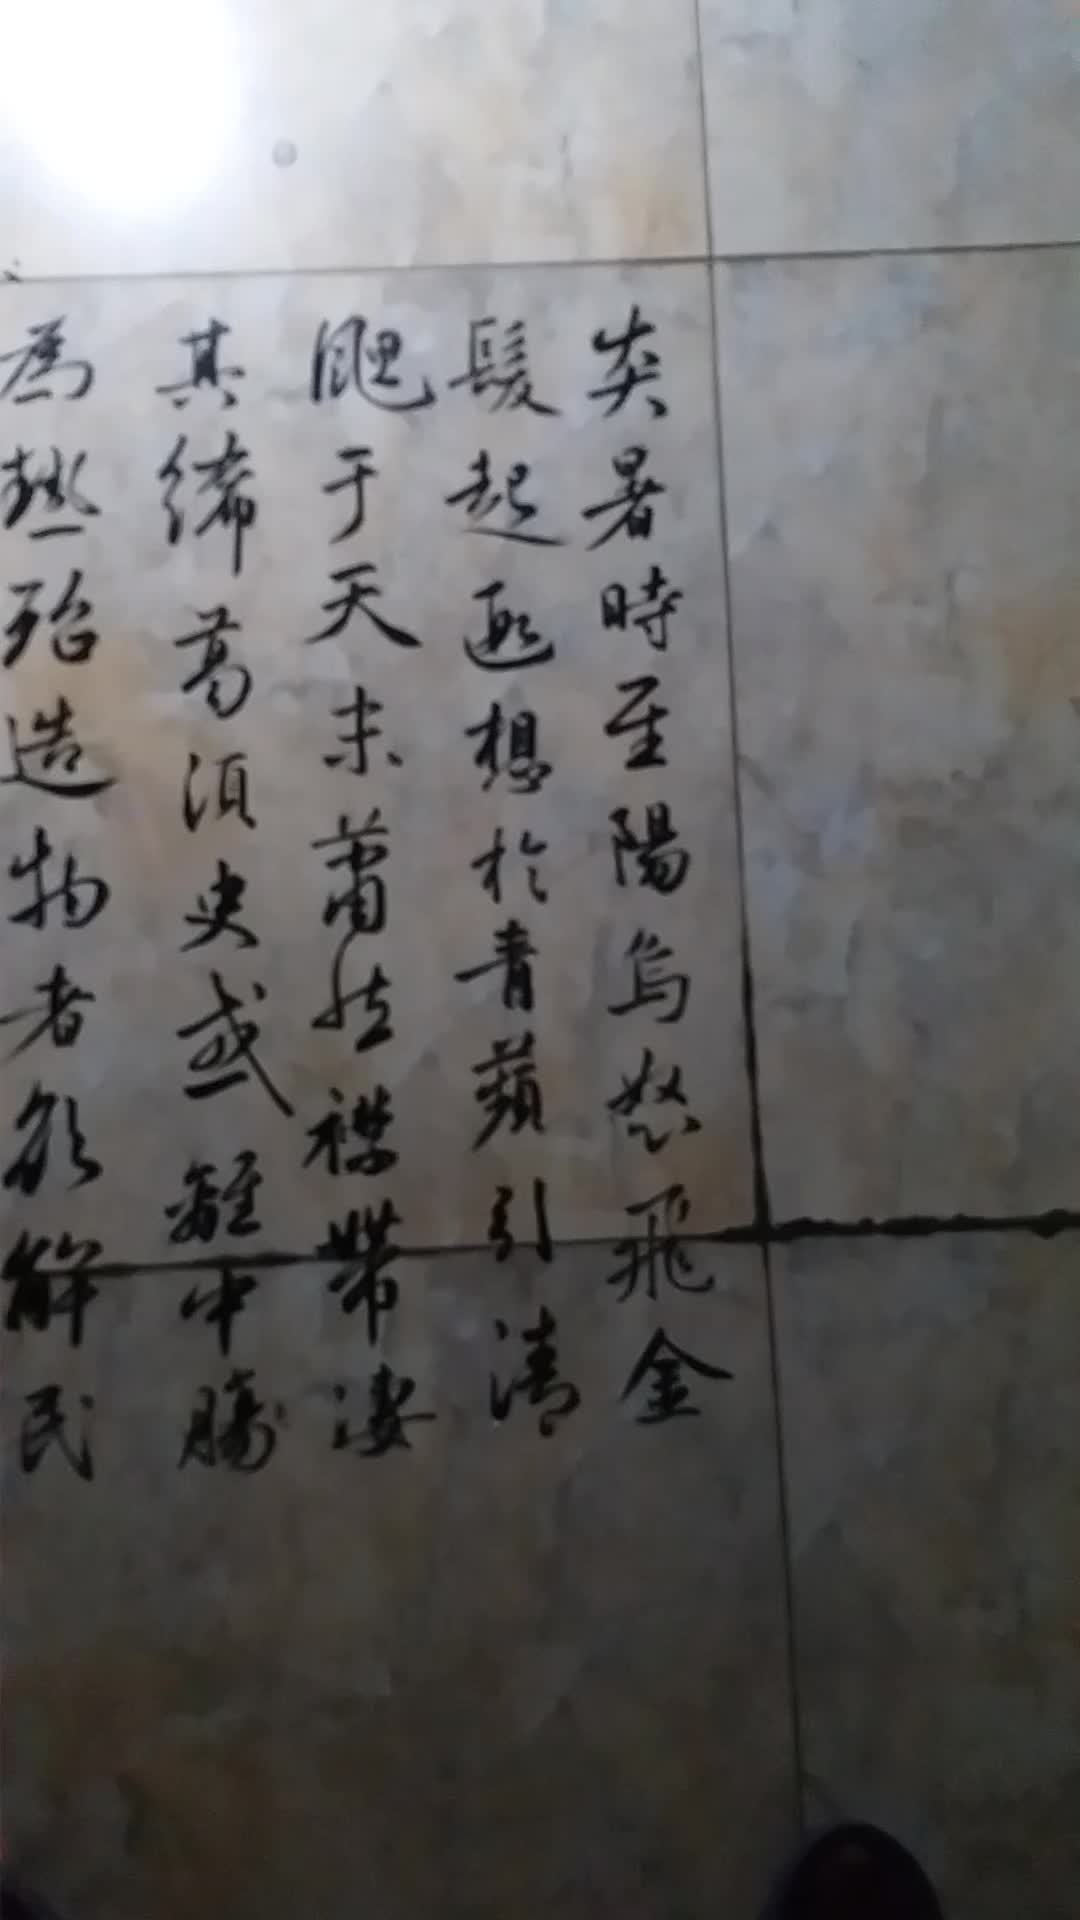 炎暑時至陽烏怒飛金
起遐想於青蘋引清
颸于天末蕭然襟帶淒
其絺葛須臾或離中腸
為熱殆造物者欲解民